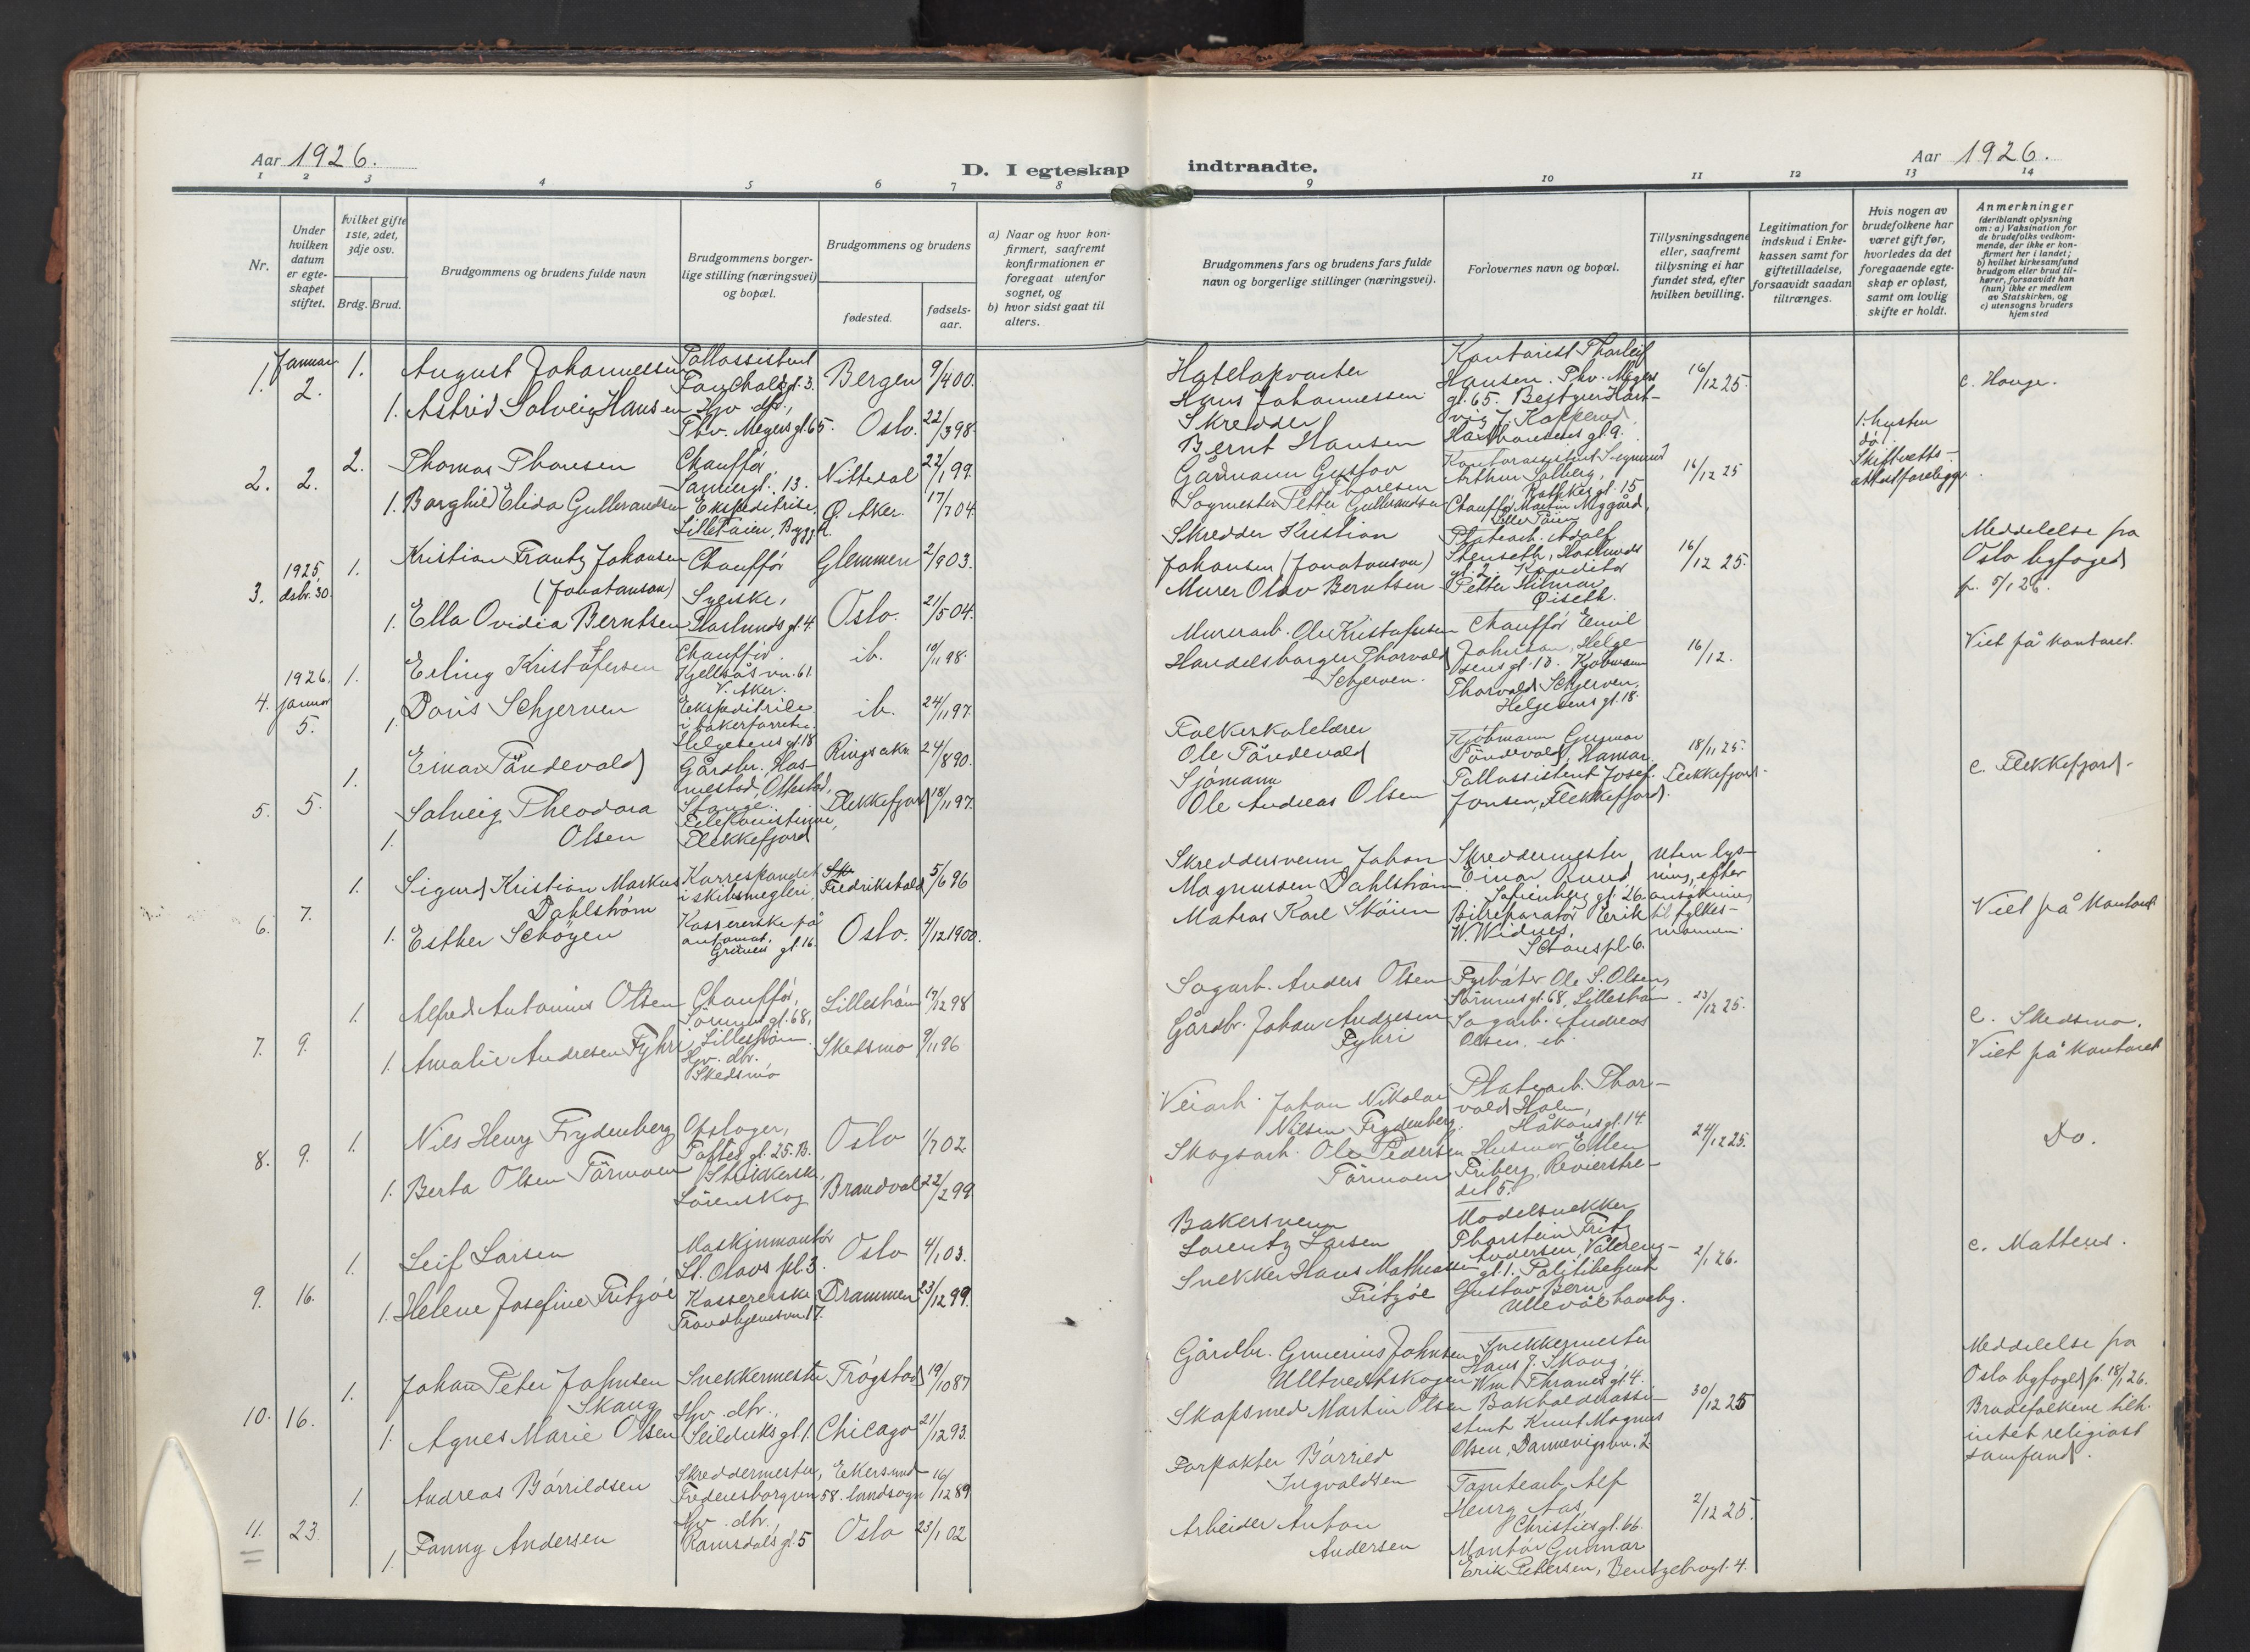 Aar 1926.
D. I egteskap
1 2 3 4 5 6 7 8
Nr.
Under hvilken datum er egteskapet stiftet.
hvilket gifte 1ste, 2det, 3dje osv.
Brdg. Brud.
Brudgommens og brudens fulde navn
Brudgommens borgerlige stilling (næringsvei) og bopæl.
Brudgommens og brudens
fødested.
fødselsaar.
a) Naar og hvor konfirmert, saafremt konfirmationen er foregaat utenfor sognet, og
b) hvor sidst gaat til alters.
1. Januar 2. 1. August Johannessen Tollassistent Bergen 9/4 00.
1. Astrid Solveig Hansen Hjv. dtr., Thv. Meyers gt. 65. Oslo. 22/3 98.
2. 2. 2. Thomas Thoresen Chaufför Sannergt. 13. Nittedal 22/1 99.
1. Borghild Elida Gulbrandsen Ekspeditrise, Ö. Aker. 17/7 04.
3. 1925 dsbr. 30. 1. Kristian Frantz Johansen (Jonatanson) Chaufför Glemmen 2/9 03.
1. Ella Ovidia Berntsen Syerske, Oslo. 21/5 04.
4. 1926. januar 5. 1. Erling Kristofersen Chaufför Kjellsås vn. 61. V. Aker. ib. 98.
1. Doris Schjerven Ekspeditrise i bakerforretn. Helgesens gt. 18 ib. 24/11 97.
5. 5. 1. Einar Tändevold Gårdbr., Ottestad, Stange. Ringsaker 24/8 90.
1. Solveig Theodora Olsen Flekkefjord Flekkefjord 18/11 97.
6. 7. 1. Sigurd Kristian Markus Dahlström Korrespondet i skibsmegleri Fredrikshald 5/6 96
1. Esther Schøyen Kassererske på automat, Grüners gt. 16. Oslo. 4/12 1900.
7. 9. 1. Alfred Antonius Olsen Chaufför, gt. 68, Lilleström Lilleström 17/12 98
1. Amalie Andresen Fykri Hjv. dtr. Skedsmo Skedsmo 9/11 96
8. 9. 1. Nils Henry Frydenberg Opslager, Toftes gt. 25. B. Oslo 1/7 02.
1. Berta Olsen Törmoen Strikkerske, Lörenskog Brandval 22/2 99
9. 16. 1. Leif Larsen Maskinmontör St. Olavs pl. 3. Oslo 4/1 03.
1. Helene Josefine Fritzöe Kassererske Trondhjemsvn. 17. Drammen 23/12 99.
10. 16. 1. Johan Peter Johnsen Skaug Snekkermester Trögstad 19/10 87
1. Agnes Marie Olsen Hjv. dtr., Seilduks gt. 1. Chicago 21/12 93.
11. 23. 1. Andreas Börrildsen Skreddermester, Fredensborgvn 58. Eekersund landsogn 16/12 89
1. Fanny Andersen Hjv. dtr., Romsdals gt. 5 Oslo 23/1 02
indtraadte.
Aar 1926.
9 10 11 12 13 14
Brudgommens fars og brudens fars fulde navn og borgerlige stillinger (næringsvei).
Forlovernes navn og bopæl.
Tillysningsdagene eller, saafremt tillysning ei har fundet sted, efter hvilken bevilling.
Legitimation for indskud i Enkekassen samt for giftetilladelse, forsaavidt saadan tiltrænges.
Hvis nogen av brudefolkene har været gift før, hvorledes da det foregaaende egteskap er opløst, samt om lovlig skifte er holdt.
Anmerkninger
(deriblandt oplysning om: a) Vaksination for de brudefolks vedkommende, der ikke er konfirmert her i landet; b) hvilket kirkesamfund brudgom eller brud tilhører, forsaavidt han (hun) ikke er medlem av Statskirken, og c) utensogns bruders hjemsted
Hans Johannessen Kontorist Thorleif Hansen. Thv. Meyers gt. 65. 16/12 25. c. Hauge.
Skredder Bernt Hansen
Gårdmann Gustav Thoresen Kontorassistent Sigmund Arthur Solberg, 15 16/12 25 1. hustru död. Skifteretts-
Petter Gulbrandsen Chauffør Martin
Skredder Kristian Johansen (Jonatanson) Adolf Stenseth, 16/12 25. Meddelelse fra Oslo byfoged fr. 5/1 26.
Murer Olav Berntsen Konditor Petter Hilmar
Murerarb. Ole Kristofersen Chaufför Emil Johnson, Helgesens gt. 18. 16/12. Viet på kontoret.
Handelsborger Thorvald Schjerven. Kjøbmann Thorvald Schjerven, Helgesens gt. 18.
Folkeskolelærer Ole Tändevold Kjøbmann Gunnar Töndevold, Hamar 18/11 25. Flekkefjord. c. Flekkefjord.
Sjömann Ole Andreas Olsen Tollassistent Josef Jonsen, Flekkefjord.
Skreddersvenn Johan Magnussen Dahlström Skreddermester Einar Ruud, Sofienberg gt. 26. Uten lysning, efter fylkesmannen. Viet på kontoret
Matros Karl Sköien Bilreparatör Erik W. Widnes,
Sagarb. Anders Olsen Fyrböter Ole S. Olsen, gt. 68, Lilleström 23/12 25. c. Skedsmo.
Gårdbr. Johan Andresen Fykri Sagarb. Andreas Olsen. ib. Viet på kontoret
Veiarb. Johan Nikolai Nilsen Frydenberg. Thorvald Holm, Håkons gt. 14. 24/12 25. Do.
Skogsarb. Ole Pedersen Törmoen Husmor Ellen Friberg, Revierstredet 5.
Bakersvenn Lorentz Larsen Modelsnekker Thorstein Fritz Andersen, Vålereng-gt. 1. 2/1 26. c. Matteus.
Snekker Hans Mathiassen Fritzöe Politibetjent Gustav Bern, Ullevål haveby.
Gårdbr. Gunerius Johnsen Ulltvedtskogen Snekkermester Hans J. Skaug, Wm. Thranes gt. 4. 30/12 25 Meddelelse fra Oslo byfoged fr. 18/1 26.
Skapsmed Martin Olsen Bokholderassistent Knut Magnus Olsen, Dannevigsvn. 2. Brudefolkene tilh. intet religiöst samfund.
Forpakter Börrild Ingvaldsen Tomtearb. Alf Henry Aas, Christies gt. 66. 2/12 25.
Arbeider Anton Andersen Montör Gunnar Erik Petersen, Bentzebrogt. 4.